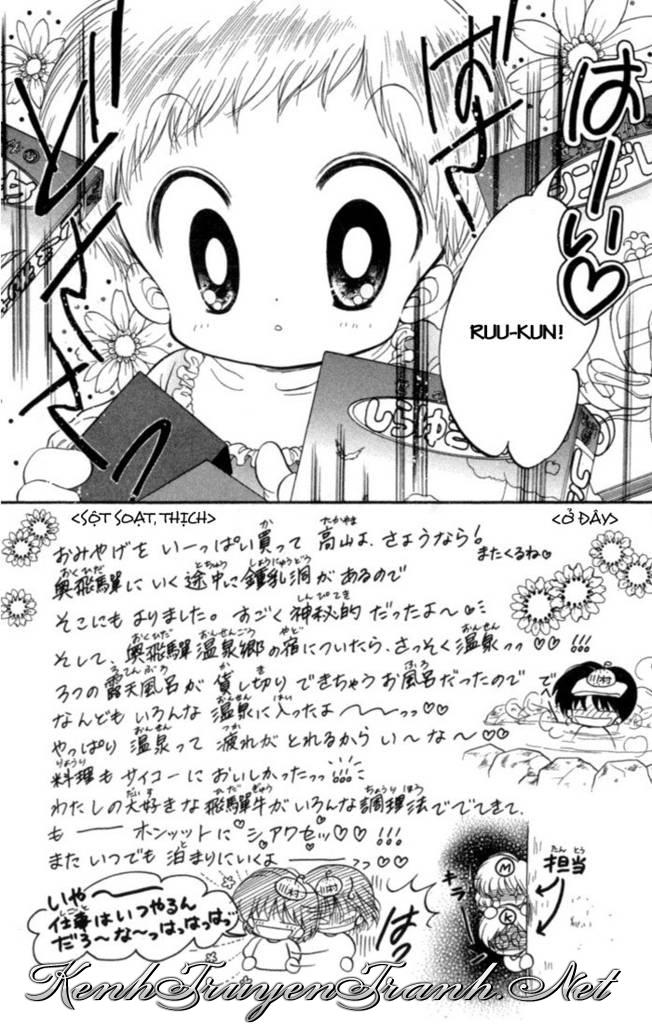 はーい♡
ばさっ
どさどさっ
RUU-KUN!
しらゆき
<SỘT SOẠT, THỊCH>
<Ở ĐÂY>
おみやげを いーっぱい買って 高山よ、さようなら!
またくるね♡
奥飛騨に いく 途中に 鍾乳洞が あるので
そこにも よりました。すごく 神秘的 だったよ〜♡
そして、奥飛騨 温泉郷の 宿に ついたら、さっそく 温泉っっ♡♡!!!
3つの 露天風呂が 貸し切り できちゃう お風呂だったので で
なんども いろんな 温泉に 入ったよ〜〜っっ♡♡
やっぱり 温泉って 疲れが とれるから い〜な〜♡
料理も サイコーに おいしかったっっ!!!
わたしの 大好きな 飛騨牛が いろんな 調理法で でてきて、
も ── ホンットに シアワセッ♡♡!!!
また いつでも 泊まりに いくよ ──っっ♡♡
川村
いや〜〜
仕事は いつやるん
だろ〜な〜っはっはっはっ
川村
川村
はっ
キラ
M
K
担当
KenhTruyenTranh.Net